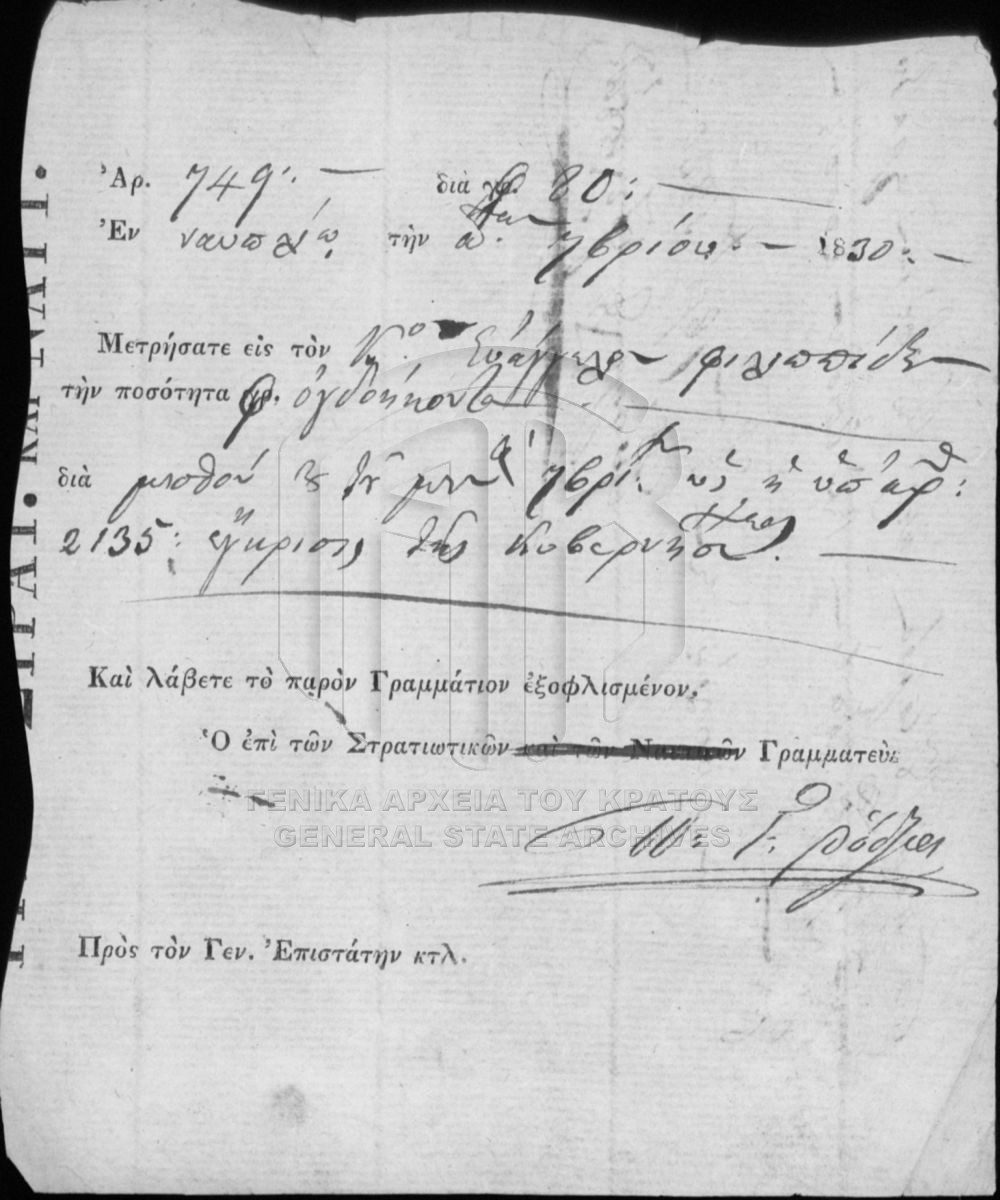 Ἀρ. 749: — διὰ φ. 80: —
Ἐν ναυπλίῳ τὴν α. 7βρίου. — 1830: —
Μετρήσατε εἰς τὸν Κ.ο Εὐάγγελον φιλιππίδην
τὴν ποσότητα φ. ὀγδοήκοντα
διὰ μισθόν 7βρί. ὡς ἡ ὑπ' ἀρ:
2135: ἔγκρισις τῆς Κυβερνήσεως.
Καὶ λάβετε τὸ παρὸν Γραμμάτιον ἐξοφλισμένον.
Ὁ ἐπὶ τῶν Στρατιωτικῶν καὶ τῶν Ναυτικῶν Γραμματεὺς
ΓΕΝΙΚΑ ΑΡΧΕΙΑ ΤΟΥ ΚΡΑΤΟΥΣ
GENERAL STATE ARCHIVES
Πρὸς τὸν Γεν. Ἐπιστάτην κτλ.